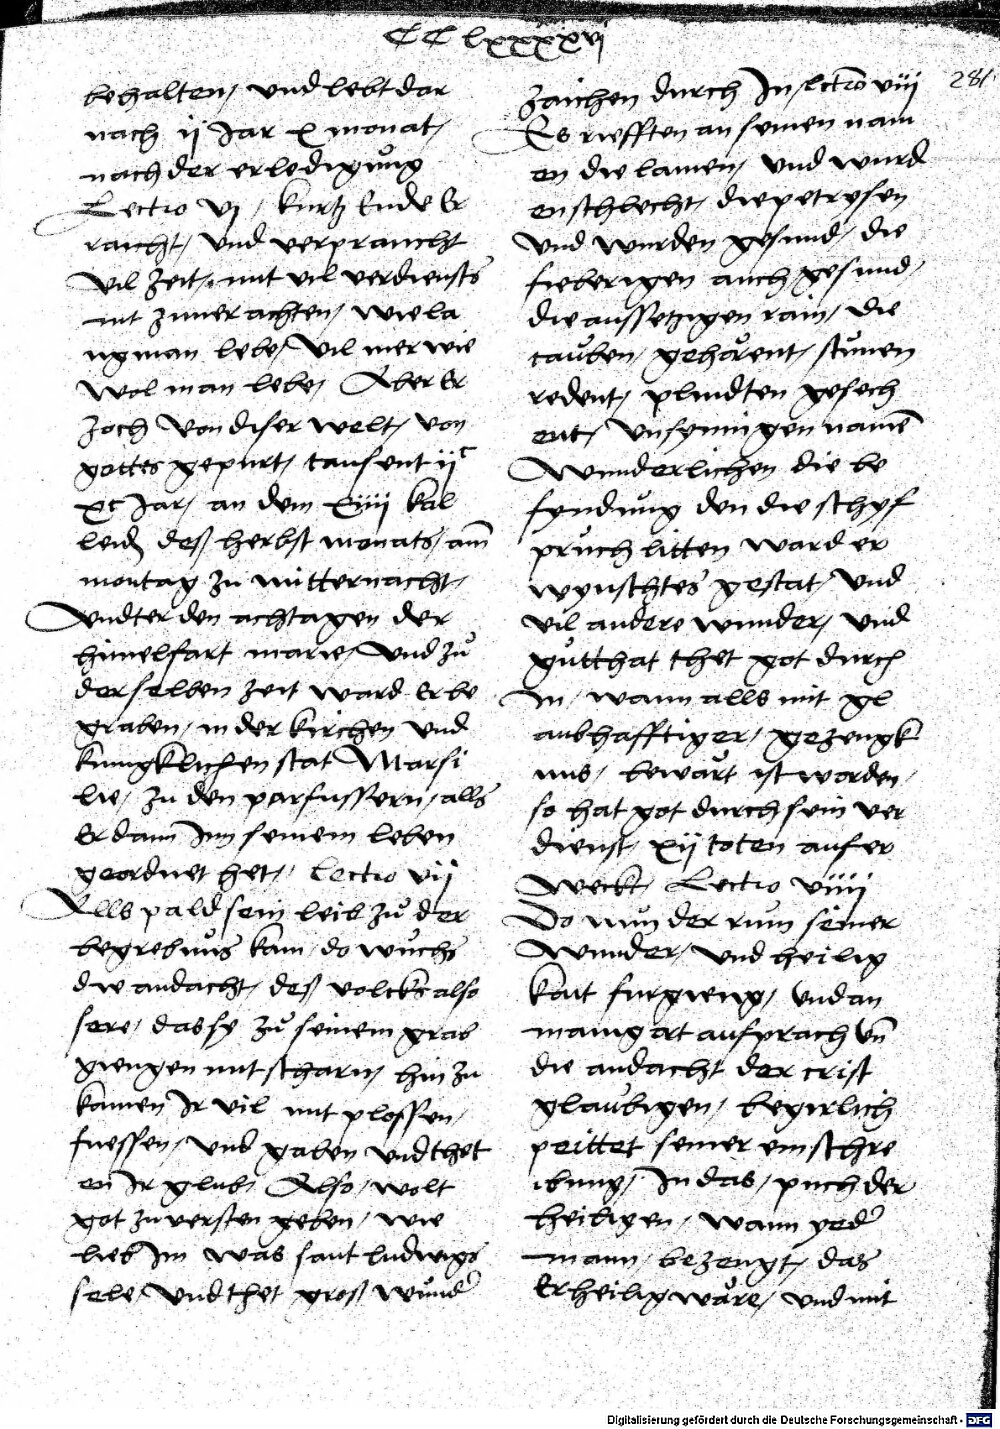 CC lxxxxvj
281
behalten / vnd lebt dar
nach ij Jar x monat /
nach der erledigůng
Lectio vj / kurtz Ende Er
raicht / vnd verpraucht
vil zeit / mit vil verdiensts
mit zuuerachten / wie la
ng man lebe / vil mer wie
wol man lebe / Aber Er
zoch von diser welt / von
gottes gepurt / tausent ijc
xc Jar / an dem xiiij kal
leid deß herbst monats / am̄
montag zu mitternacht /
vndter den achtagen der
himelfart marie / vnd zů
derselben zeit ward Er be
graben / in der kirchen vnd
kunigklichen stat Marsi
lie / zu den parfussern / alls
Er dann Im seinem leben
geordnet het / Lectio vij
Alls pald sein leib zů der
begrebnus kam / do wůchs
die andacht / deß volcks also
sere / das sy zů seinem grab
giengen mit scharn / hin zu
kamen Ir vil mit plossen /
fuessen / vnd gaben vnd thet
en Ir glub / Also / wolt
got zu versten geben / wie
lieb Im was sant ludwigs
sele / vnd thet groß wůnd
zaichen durch In / lectio viij
Es riefften an seinen nam
en die lamen / vnd wurd
en schlecht / die petrysen
vnd wurden gesund / die
fieberigen auch gesund /
die aussetzigen rain / die
tauben / gehőrent / stumen
redent / plindten gesech
ent / vnsynnigen namē
wunderlichen die be
fyndůng den die schyf
průch litten ward er
wynschtes gestat / vnd
vil andere wunder / vnd
gůtthat thet got durch
in / wann alls mit gl
aubhafftiger / gezengk
nus / bewart ist worden /
so hat got durch sein ver
dienst / xij toten aufer
weckt / Lectio viiij
Do nůn der rum seiner
wunder / vnd heilig
kait furgieng / vnd an
manig ort aufprach vn̄
die andacht der crist
glaubigen / begirlich
peittet seiner einschre
ibung / In das / puch der
heiligen / wann yed
mann / bezeugt / das
Er heilig wăre / vnd mit
Digitalisierung gefördert durch die Deutsche Forschungsgemeinschaft - DFG